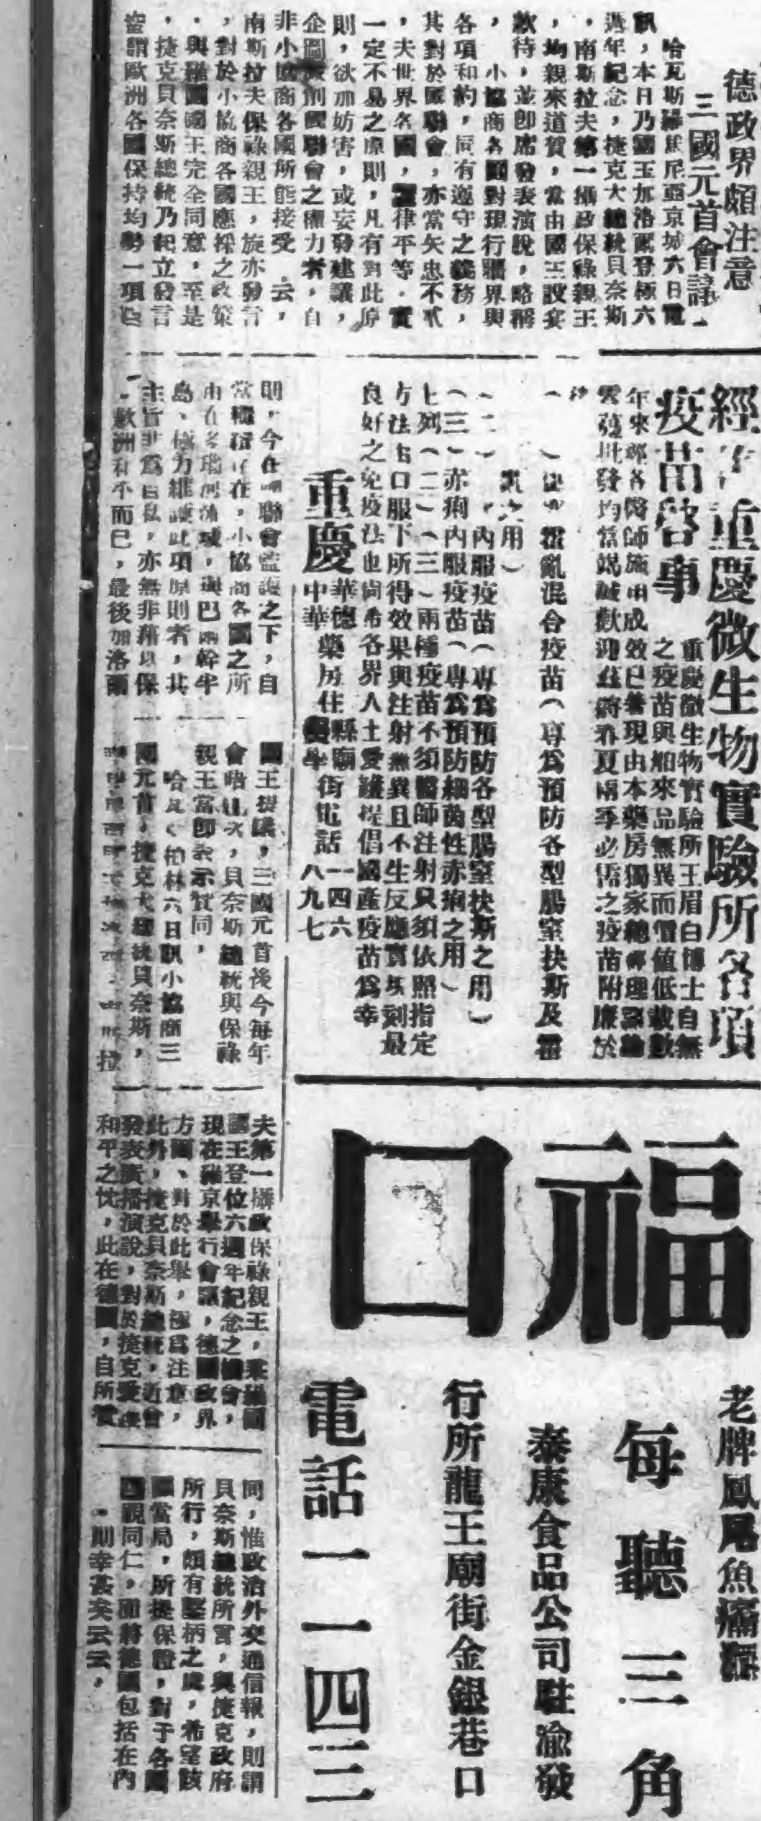 德政界頗注意
三國元首會議
哈瓦斯羅馬尼亞京城六日電
訊，本日乃國王加洛爾登極六
週年紀念，捷克大總統貝奈斯
，南斯拉夫第一攝政保祿親王
，均親來道賀，當由國王設宴
款待，並卽席發表演說，略稱
，小協商各國對現行疆界與
各項和約，同有遵守之義務，
其對於國聯會，亦當矢忠不貳
，夫世界各國，律平等，實
一定不易之原則，凡有對此原
則，欲加妨害，或妄發建議，
企圖削國聯會之權力者，自
非小協商各國所能接受云，
南斯拉夫保祿親王，旋亦發言
，對於小協商各國應採之政策
，與羅國國王完全同意，至是
，捷克貝奈斯總統乃起立發言
謂歐洲各國保持均勢一項
則，今在國聯會監護之下，自
當積存在，小協商各國之所
由在多瑙河流域，與巴爾幹半
島，極力維護此項原則者，其
主旨非爲自私，亦無非藉以保
歐洲和平而已，最後加洛爾
國王提議，三國元首後今每年
會晤次，貝奈斯總統與保祿
親王當卽表示贊同，
哈瓦斯柏林六日訊小協商三
國元首，捷克大總統貝奈斯，
夫第一攝政保祿親王，乘羅國
國王登位六週年紀念之機會，
現在羅京舉行會議，德國政界
方面，對於此舉，極爲注意，
此外，捷克貝奈斯總統，近曾
發表廣播演說，對於捷克愛護
和平之忱，此在德國，自所贊
同，惟政治外交通信報，則謂
貝奈斯總統所言，與捷克政府
所行，頗有鑿柄之處，希望該
國當局，所提保證，對于各國
一視同仁，而將德國包括在內
，則幸甚矣云云，
經重慶微生物實驗所各項
疫苗啓事
重慶微生物實驗所王眉白博士自無
之疫苗與舶來品無異而價值低載數
年來鄰各醫師施用成效已著現由本藥房獨家總經理謬論
零發批發均當竭誠歡迎茲將春夏兩季必需之疫苗附廉於
霍亂混合疫苗（專爲預防各型腸窒扶斯及霍
亂之用）
（二）內服疫苗（專爲預防各型腸窒扶斯之用）
（三）赤痢內服疫苗（專爲預防細菌性赤痢之用）
上列（二）（三）兩種疫苗不須醫師注射只須依照指定
方法由口服下所得效果與注射無異且不生反應實爲刻最
良好之免疫法也尚希各界人士愛護提倡國產疫苗爲幸
重慶
華德藥房住縣廟街電話一四六
中華 八九七
福口
老牌鳳尾魚
每聽三角
泰康食品公司駐渝發
行所龍王廟街金銀巷口
電話一一四三